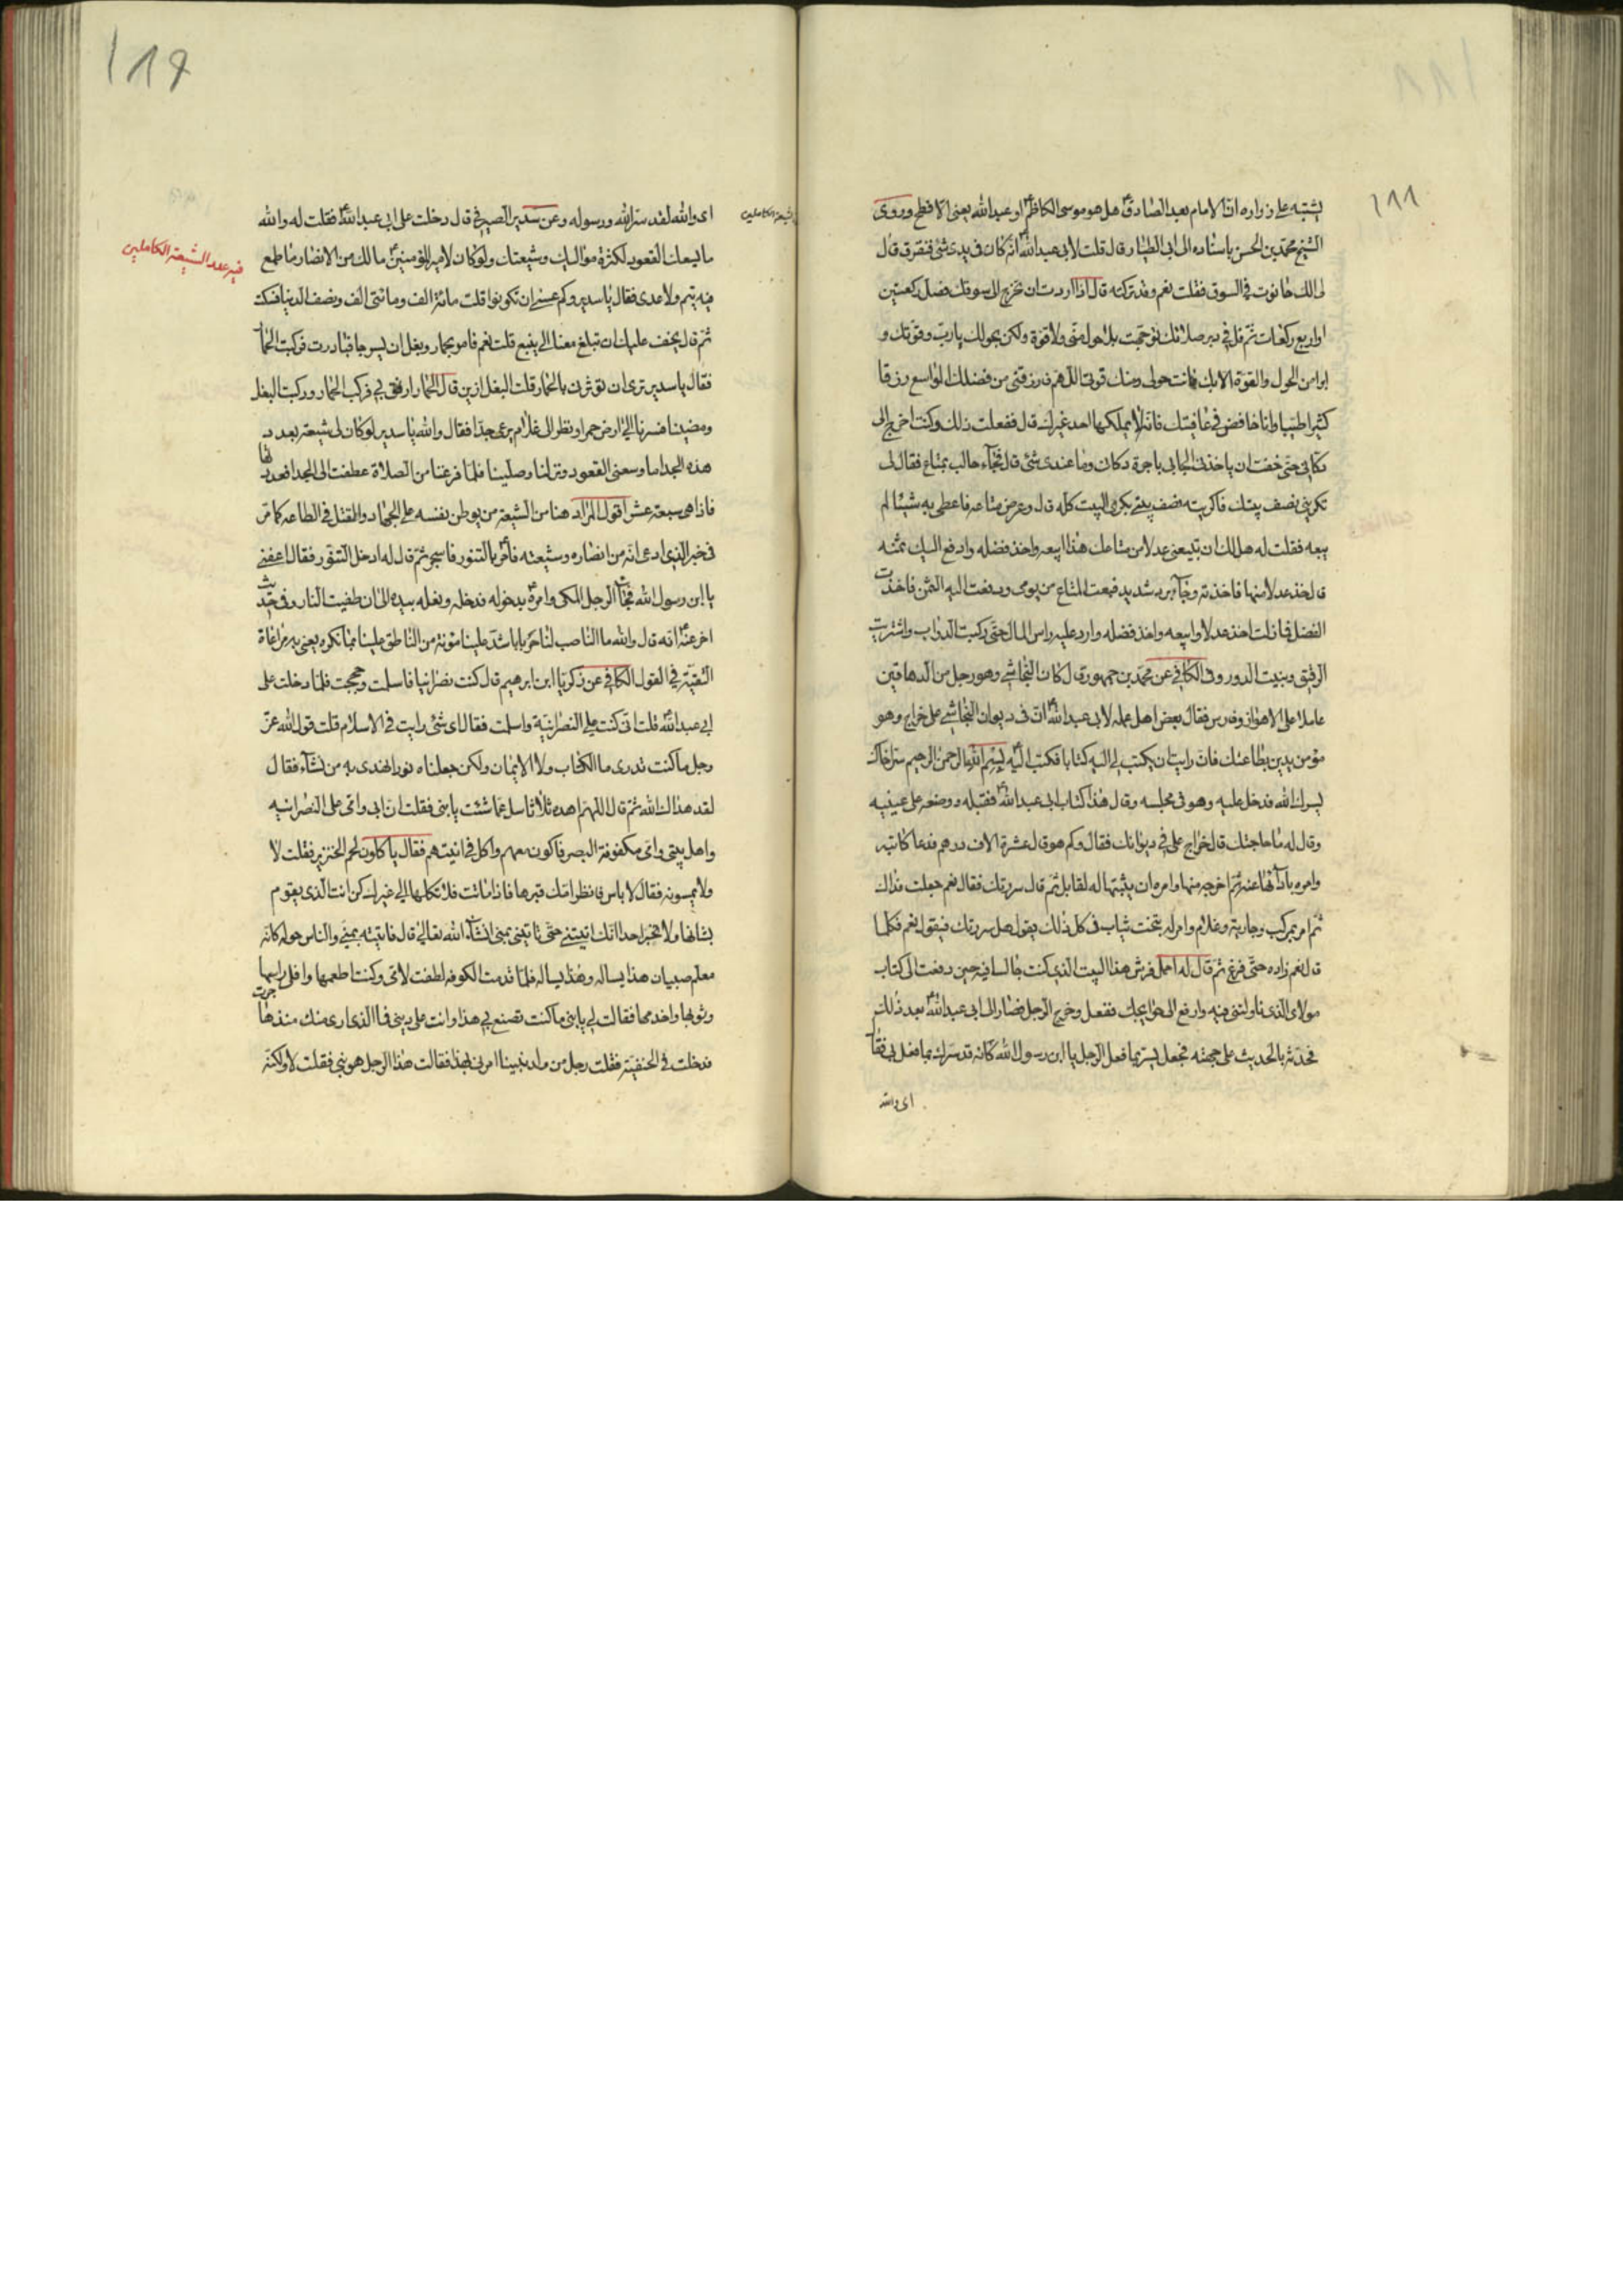 ١٨٨
يشتبه على زراره انّ الامام بعد الصادق ع هل هو موسى الكاظم ع او عبد الله يعنى الافطح وروى
الشيخ محمّد بن الحسن باسناده الى ابى الطيار قال قلت لأبى عبد الله ع انّه كان فى يدى شئ فتفرق قال
لى الك حانوت فى السوق فقلت نعم وقد تركته قال اذا اردت ان تخرج الى سوقك فصل ركعتين
او اربع ركعات ثمّ قل فى دبر صلاتك توجّهت بلا حول منّى ولا قوة ولكن بحولك يا ربّ وقوّتك و
ابرا من الحول والقوة الا بك فانت حولى ومنك قوتى اللّهم فارزقنى من فضلك الواسع رزقا
كثيرا طيّبا وانا خافض فى عافيتك فانّه لا يملكها احد غيرك قال ففعلت ذلك وكنت اخرج الى
دكّانى حتّى خفت ان ياخذنى الجابى باجرة دكان وما عندى شئ قال فجاء جالب بمتاع فقال لى
تكرينى نصف بيتك فاكريته نصف بيتى بكرى البيت كلّه قال وعرض متاعه فاعطى به شيئا لم
يبعه فقلت له هل لك ان تبيعنى عدلا من متاعك هذا ابيعه واخذ فضله وادفع اليك ثمنه
قال خذ عدلا منها فاخذته وجاء برد شديد فبعت المتاع من يومى ودفعت اليه الثمن فاخذت
الفضل فما زلت اخذ عدلا وابيعه واخذ فضله وارد عليه راس المال حتّى ركبت الدوّاب واشتريت
الرقيق وبنيت الدور وفى الكافى عن محمّد بن جمهور قال كان النجاشى وهو رجل من الدهاقين
عاملا على الاهواز وفارس فقال بعض اهل عمله لابى عبد الله ع انّ فى ديوان النجاشى على خراج وهو
مؤمن يدين بطاعتك فان رايت ان يكتب لى اليه كتابا فكتب اليه بسم الله الرحمن الرحيم سرّ اخاك
يسرك الله فدخل عليه وهو فى مجلسه وقال هذا كتاب ابى عبد الله ع فقبله ووضعه على عينيه
وقال له ما حاجتك قال خراج على فى ديوانك فقال وكم هو قال عشرة الاف درهم فدعا كاتبه
وامره بادآئها عنه ثمّ اخرجه منها وامره ان يثبتها له لقابل ثمّ قال سررتك فقال نعم جعلت فداك
ثمّ امر بمركب وجارية وغلام وامر له بتخت ثياب فى كل ذلك يقول هل سررتك فيقول نعم فكلما
قال نعم زاده حتّى فرغ ثمّ قال له احمل فرش هذا البيت الذى كنت جالسا فيه حين دفعت الى كتاب
مولاى الذى ناولتنى فيه وارفع الى حوايجك ففعل وخرج الرجل فصار الى ابى عبد الله ع بعد ذلك
فحدّثه بالحديث على جهته فجعل يسرّ بما فعل الرجل يا ابن رسول الله كانه قد سرّك بما فعل بى فقال
اى والله
١٨٩
اى والله لقد سرّ الله ورسوله وعن سدير الصيرفى قال دخلت على ابى عبد الله ع فقلت له والله
ما يسعك القعود لكثرة مواليك وشيعتك ولو كان لامير المؤمنين ع مالك من الانصار ما طمع
فيه تيم ولا عدى فقال يا سدير وكم عسى ان تكونوا قلت مائة الف ومائتى الف ونصف الدنيا فسكت
ثمّ قال يخف عليك ان تبلغ معنا الى ينبع قلت نعم فامر بحمار وبغل ان يسرجا فبادرت فركبت الحمار
فقال يا سدير ترى ان تؤثرنى بالحمار قلت البغل ازين قال الحمار ارفق بى فركب الحمار وركبت البغل
ومضينا فسرنا الى ارض حمرا ونظر الى غلام يرعى جدا فقال والله يا سدير لو كان لى شيعة بعدد
هذه الجدا ما وسعنى القعود ونزلنا وصلّينا فلمّا فرغنا من الصلاة عطفت الى الجدا فعددتها
فاذا هى سبعة عشر اقول المراد هنا من الشيعة من يوطن نفسه على الجهاد والقتل فى الطاعه كما مرّ
فى خبر الذى ادعى انّه من انصاره وشيعته فامر ع بالتنور فاسجر ثمّ قال له ادخل التنّور فقال اعفنى
يا ابن رسول الله فجاء الرجل المكى وامره ع بدخوله فدخله وبغله بيده الى ان طفيت النار وفى حديث
اخر عنه ع انه قال والله ما الناصب لنا حربا باشدّ علينا مؤنة من الناطق علينا بما نكره يعنى به مراعاة
التقيّة فى القول الكافى عن زكريّا ابن ابرهيم قال كنت نصرانيا فاسلمت وحججت فلمّا دخلت على
ابى عبد الله ع قلت انّى كنت على النصرانيّة واسلمت فقال اى شئ رايت فى الاسلام قلت قول الله عزّ
وجل ما كنت تدرى ما الكتاب ولا الايمان ولكن جعلناه نورا نهدى به من نشآء فقال
لقد هداك الله ثمّ قال اللهمّ اهده ثلاثا سل عمّا شئت يا بنى فقلت ان ابى وامّى على النصرانيه
واهل بيتى وامّى مكفوفة البصر فاكون معهم واكل فى انيتهم فقال ياكلون لحم الخنزير فقلت لا
ولا يمسونه فقال لا باس فانظر امّك فبرها فاذا ماتت فلا تكلها الى غيرك كن انت الذى يقوم
بشانها ولا تخبر احدا انّك اتيتنى حتّى تاتينى بمنى ان شاء الله تعالى قال فاتيته بمنى والناس حوله كانّه
معلّم صبيان هذا يساله وهذا يساله فلمّا قدمت الكوفه لطفت لامّى وكنت اطعمها وافلى راسها
وثوبها واخدمها فقالت لى يا بنى ما كنت تصنع بى هذا وانت على دينى فما الذى ارى منك منذ هاجرت
فدخلت فى الحنفية فقلت رجل من ولد نبينا امرنى بهذا فقالت هذا الرجل هو نبى فقلت لا ولكنّه
فيه عدد الشيعة الكاملين